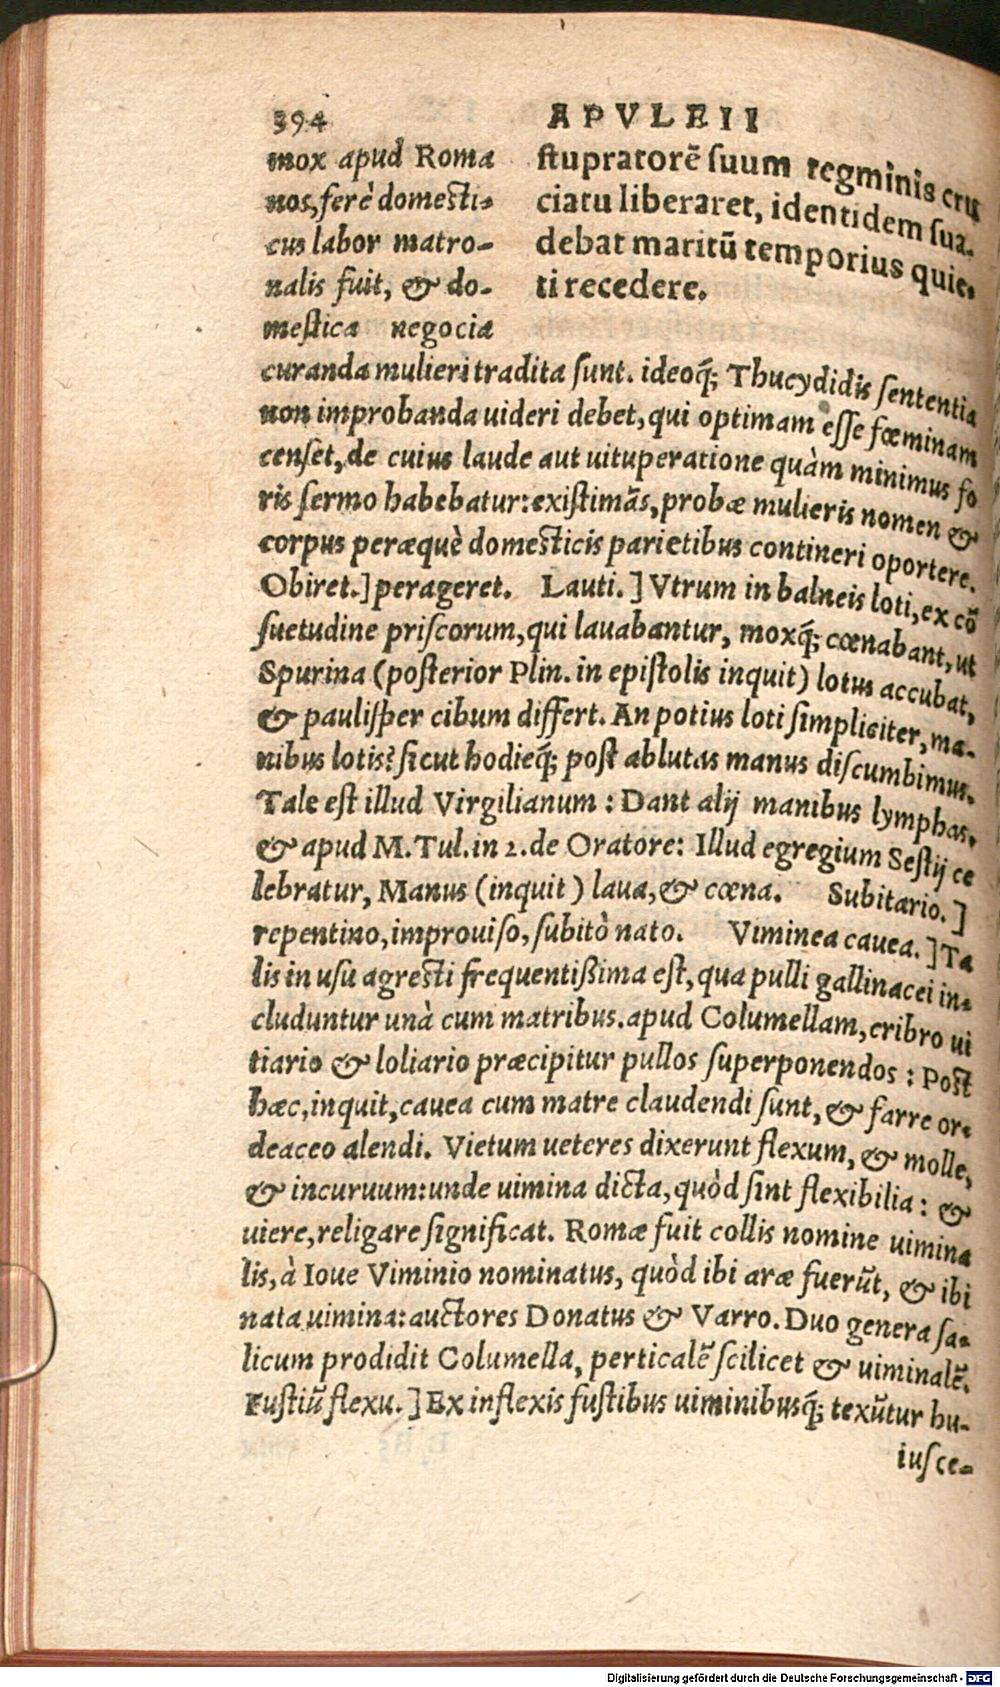 394
APVLEII
mox apud Roma
nos, ferè domesti-
cus labor matro-
nalis fuit, & do-
mestica negocia
stupratorē suum tegminis cru
ciatu liberaret, identidem sua-
debat maritū temporius quie-
ti recedere.
curanda mulieri tradita sunt. ideoq́; Thucydidis sententia
non improbanda uideri debet, qui optimam esse fœminam
censet, de cuius laude aut uituperatione quàm minimus fo
ris sermo habebatur: existimãs, probæ mulieris nomen &
corpus peræquè domesticis parietibus contineri oportere.
Obiret.] perageret. Lauti.] Vtrum in balneis loti, ex cõ
suetudine priscorum, qui lauabantur, moxq́; cœnabant, ut
Spurina (posterior Plin. in epistolis inquit) lotus accubat,
& paulisper cibum differt. An potius loti simpliciter, ma-
nibus lotis? sicut hodieq́; post ablutas manus discumbimus.
Tale est illud Virgilianum: Dant alij manibus lymphas.
& apud M. Tul. in 2. de Oratore: Illud egregium Sestij ce
lebratur, Manus (inquit) laua, & cœna. Subitario.]
repentino, improuiso, subitò nato. Viminea cauea.] Ta
lis in usu agresti frequentißima est, qua pulli gallinacei in-
cluduntur unà cum matribus. apud Columellam, cribro ui
tiario & loliario præcipitur pullos superponendos: Post
hæc, inquit, cauea cum matre claudendi sunt, & farre or-
deaceo alendi. Vietum ueteres dixerunt flexum, & molle,
& incuruum: unde uimina dicta, quòd sint flexibilia: &
uiere, religare significat. Romæ fuit collis nomine uimina
lis, à Ioue Viminio nominatus, quòd ibi aræ fuerūt, & ibi
nata uimina: auctores Donatus & Varro. Duo genera sa-
licum prodidit Columella, perticalē scilicet & uiminalē.
Fustiū flexu.] Ex inflexis fustibus uiminibusq́; texūtur hu-
iusce-
Digitalisierung gefördert durch die Deutsche Forschungsgemeinschaft - DFG